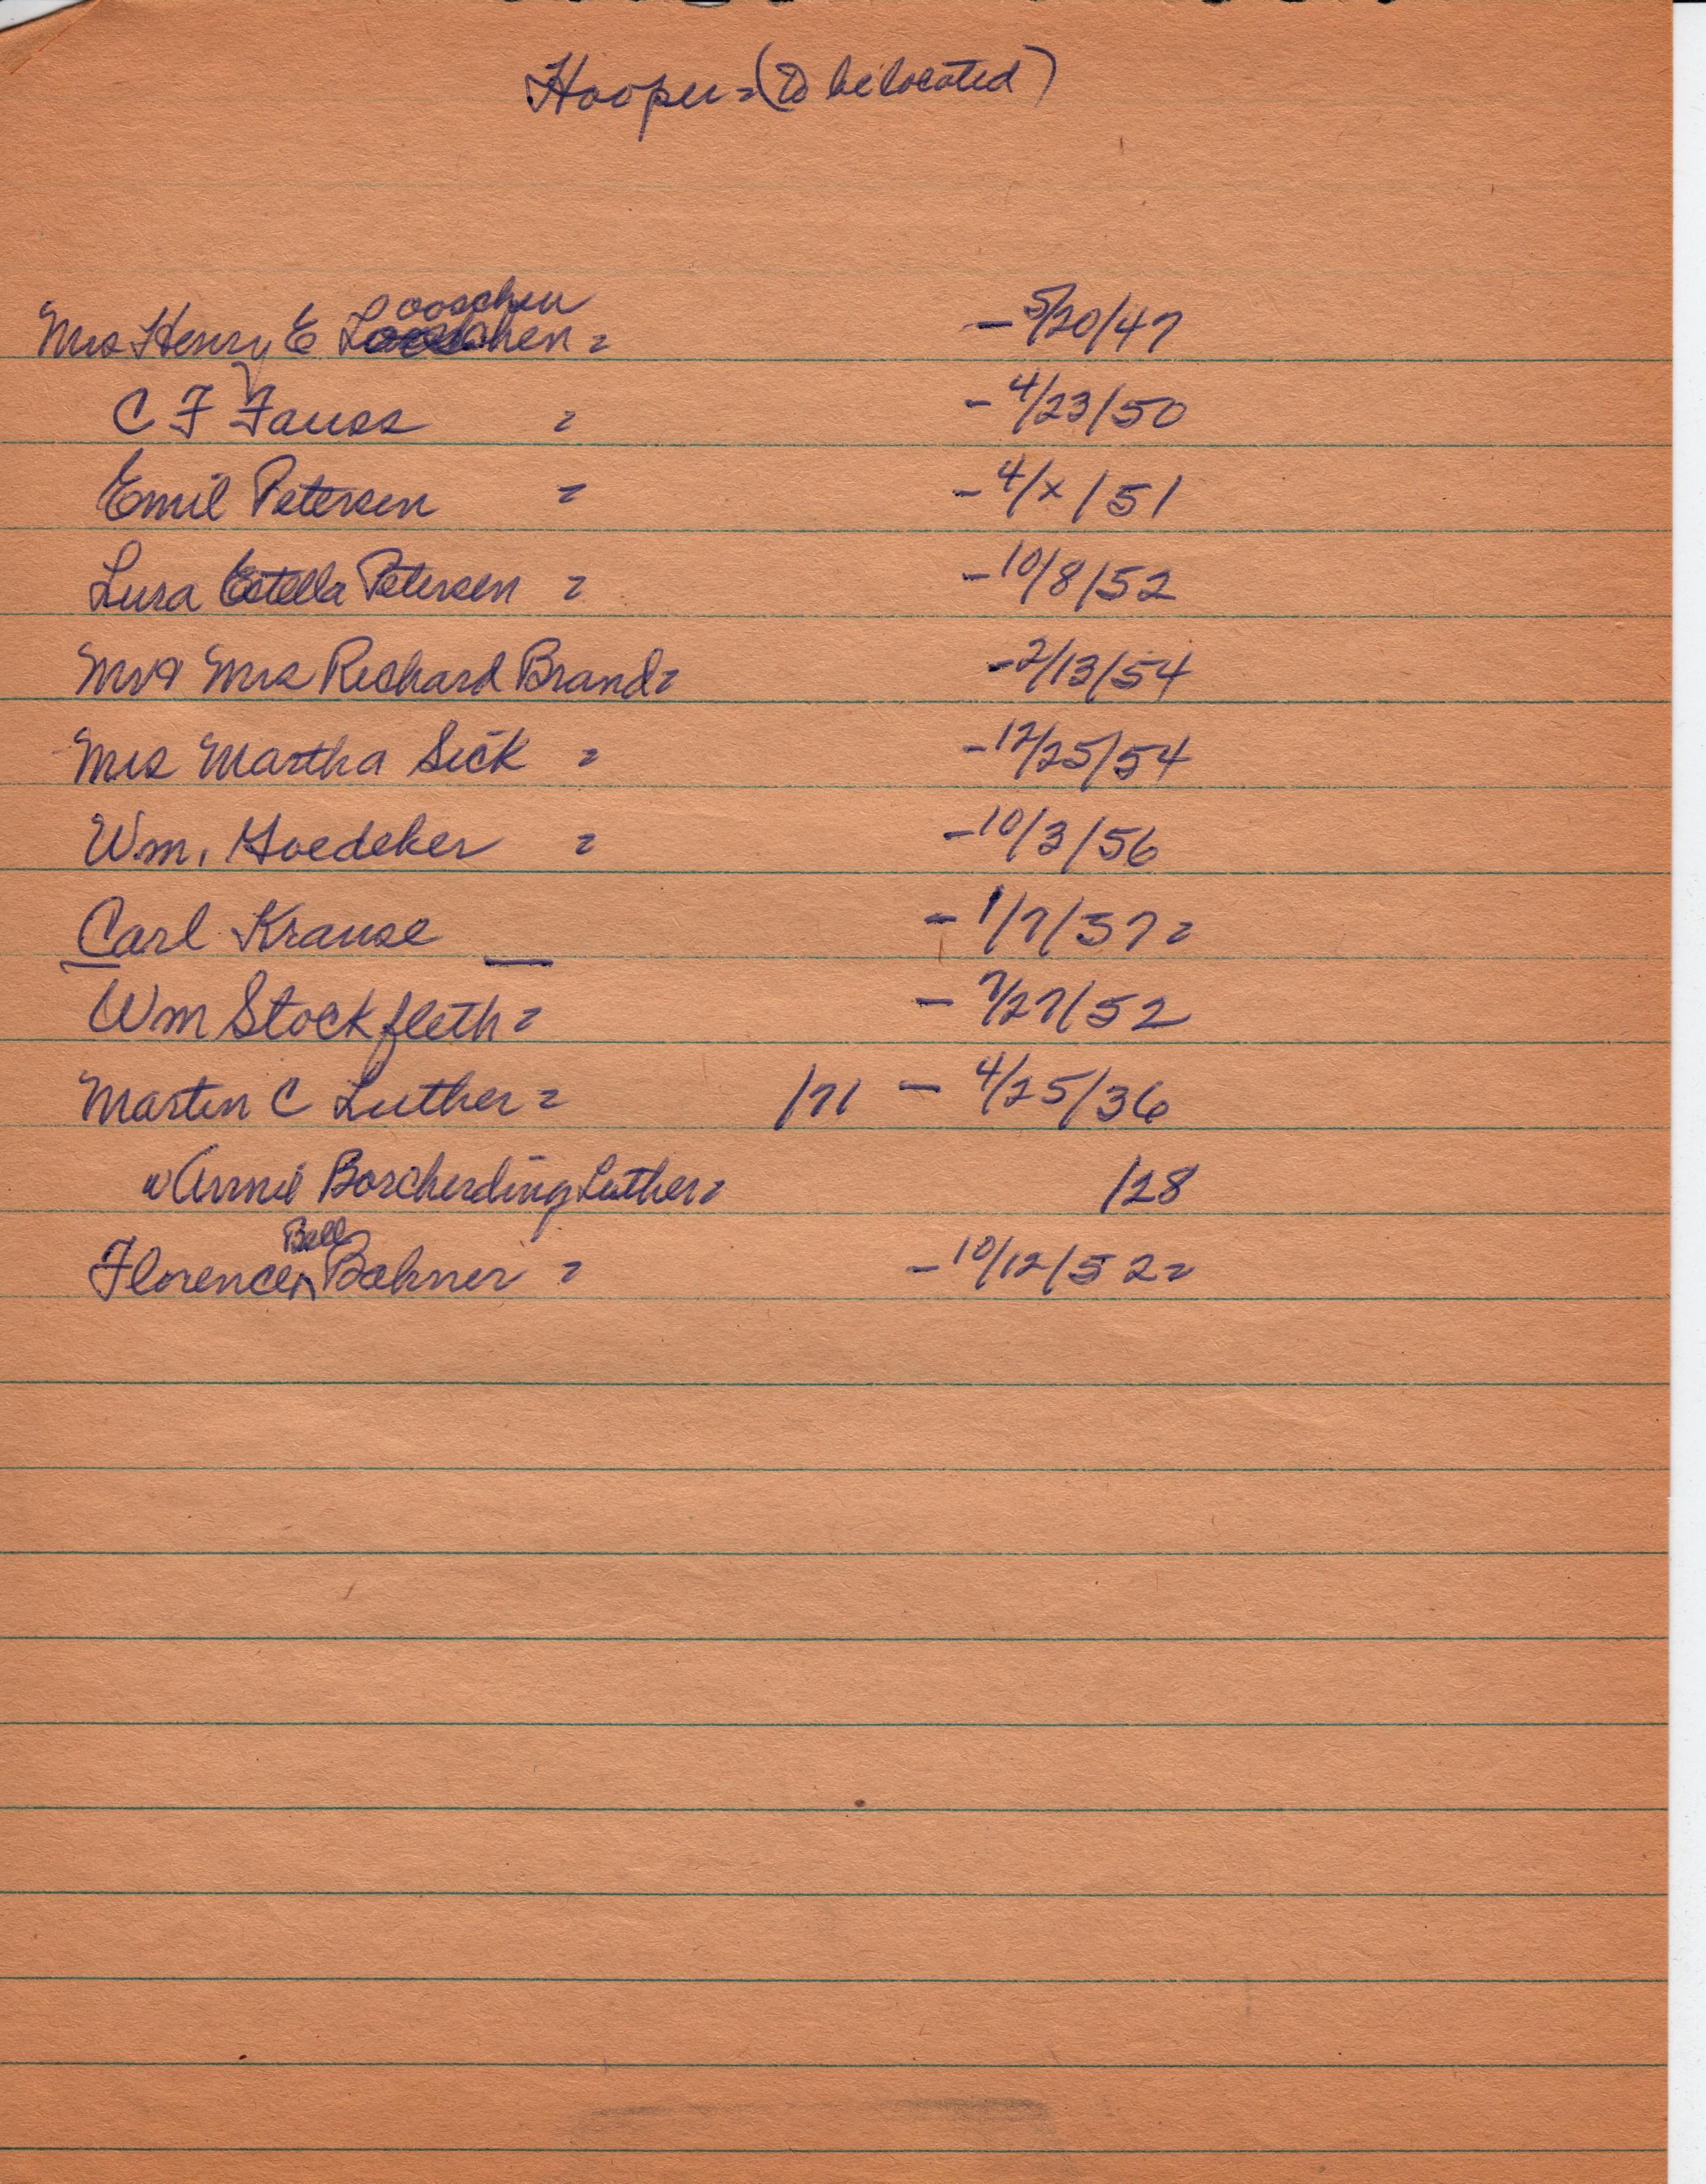 Hooper = (To be located)
Mrs Henry E Looschen = - 5/20/47
C F Fauss = - 4/23/50
Emil Petersen = - 4/x/51
Lura Estella Petersen = - 10/8/52
Mr & Mrs Richard Brand = - 2/13/54
Mrs Martha Sick = - 12/25/54
Wm. Goedeker = - 10/3/56
Carl Krause — - 1/7/37 =
Wm Stockfleth = - 7/27/52
Martin C Luther = /71 - 4/25/36
" Borcherding Luther = /28
Florence Bell Bahner = - 10/12/52 =